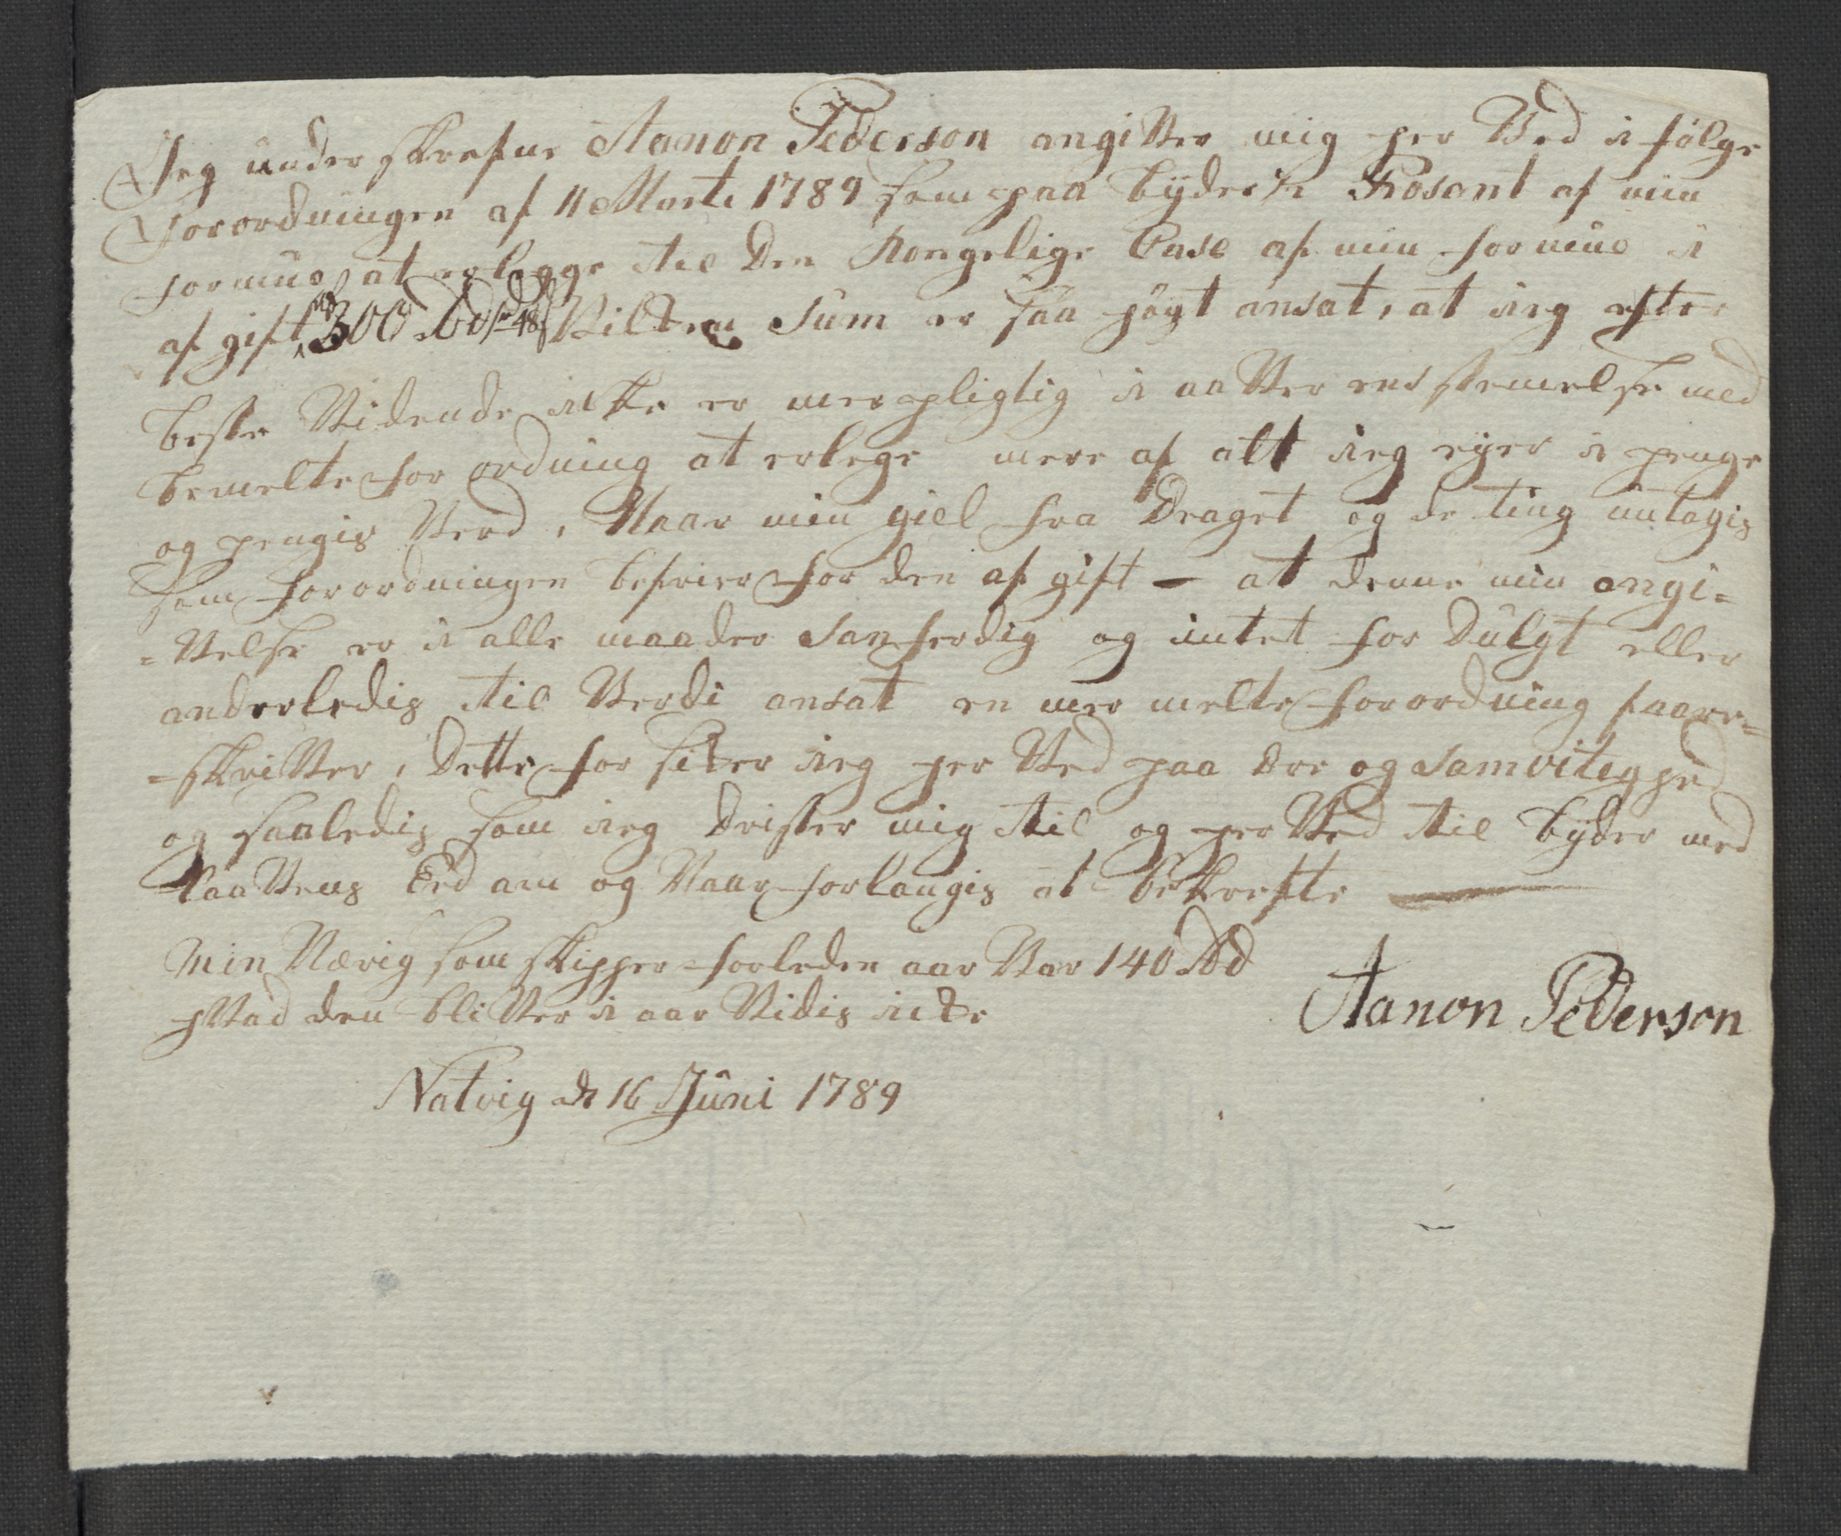 Jeg under skrefne Aanon Pederson angitter miig her Ved i følge
Forordningen af 11 Marti 1789 som paa byder ¼ Prosent af min
formue, at erlegge til Den Kongelige Casse af min formue i
af gift af 300 Rd er 48 s Vilken Sum er saa høgt ansat, at ieg efter
beste Vidende ikke er mer pligtig i aatter ens stemelse med
bemelte for ordning at erlege mere af alt ieg eyer i penge
og pengis Verd, Naar min giel fra Draget og de ting untagis
som forordningen befrier for den af gift – at denne min angi=
=Velse er i alle maader Sanferdig og intet for Dulgt eller
anderledis til Verdi ansat en mer melte forordning faare=
=skriVer, Dette for sikrer ieg her Ved paa ære og Samvitighed
og saaledis som ieg Drister mig til og her Ved til byder med
Laavens Eed om og Naar forlangis at bekrefte
Min Næring som skipper forleden aar Var 140 Rd
hvad den bliver i aar Vidis icke
Aanon Pederson
Natvig d 16 Juni 1789